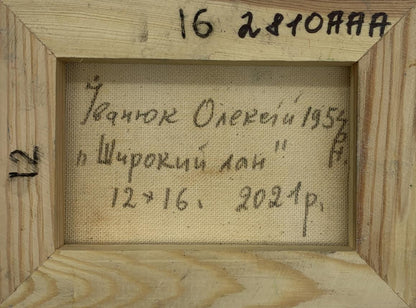 16 2810AAA
12
Іванюк Олексій 1954
р.н.
"Широкий лан"
12*16. 2021р.